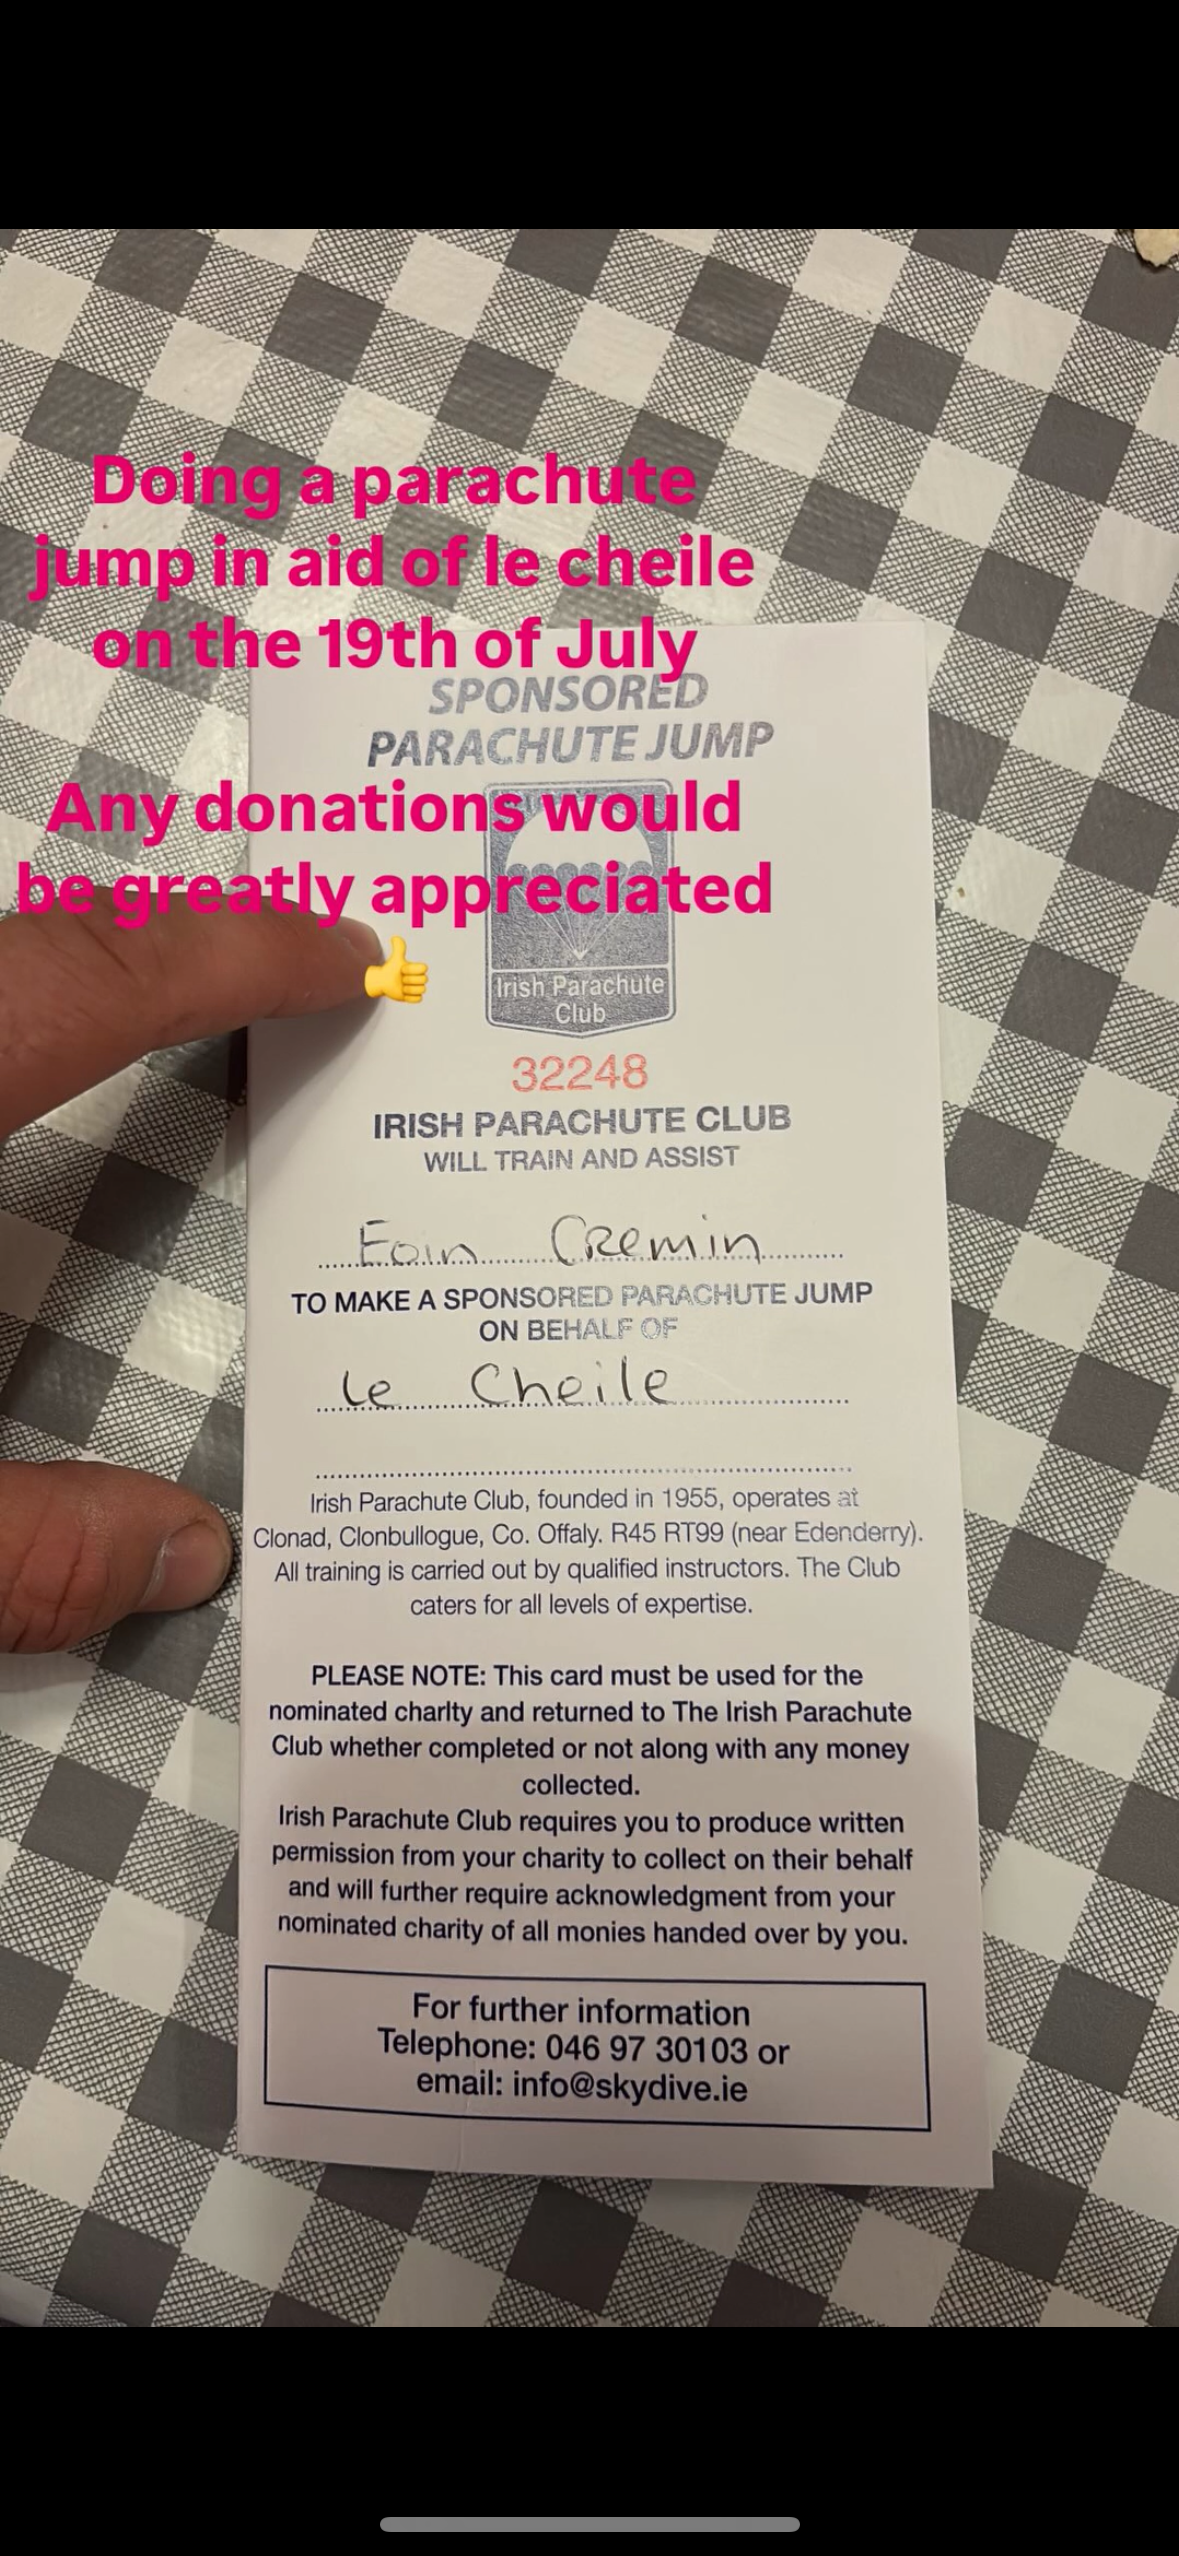 Doing a parachute
jump in aid of le cheile
on the 19th of July
SPONSORED
PARACHUTE JUMP
Any donations would
be greatly appreciated
👍
Irish Parachute
Club
32248
IRISH PARACHUTE CLUB
WILL TRAIN AND ASSIST
Eoin Cremin
TO MAKE A SPONSORED PARACHUTE JUMP
ON BEHALF OF
Le Cheile
Irish Parachute Club, founded in 1955, operates at
Clonad, Clonbullogue, Co. Offaly. R45 RT99 (near Edenderry).
All training is carried out by qualified instructors. The Club
caters for all levels of expertise.
PLEASE NOTE: This card must be used for the
nominated charity and returned to The Irish Parachute
Club whether completed or not along with any money
collected.
Irish Parachute Club requires you to produce written
permission from your charity to collect on their behalf
and will further require acknowledgment from your
nominated charity of all monies handed over by you.
For further information
Telephone: 046 97 30103 or
email: info@skydive.ie